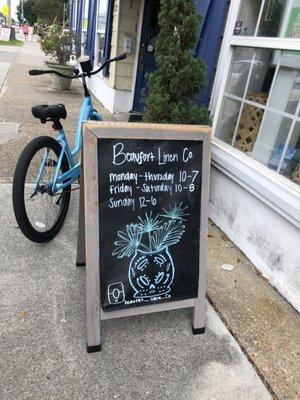 Beaufort Linen Co.
monday-Thursday 10-7
friday-Saturday 10-8
Sunday 12-6
beaufort_linen_co